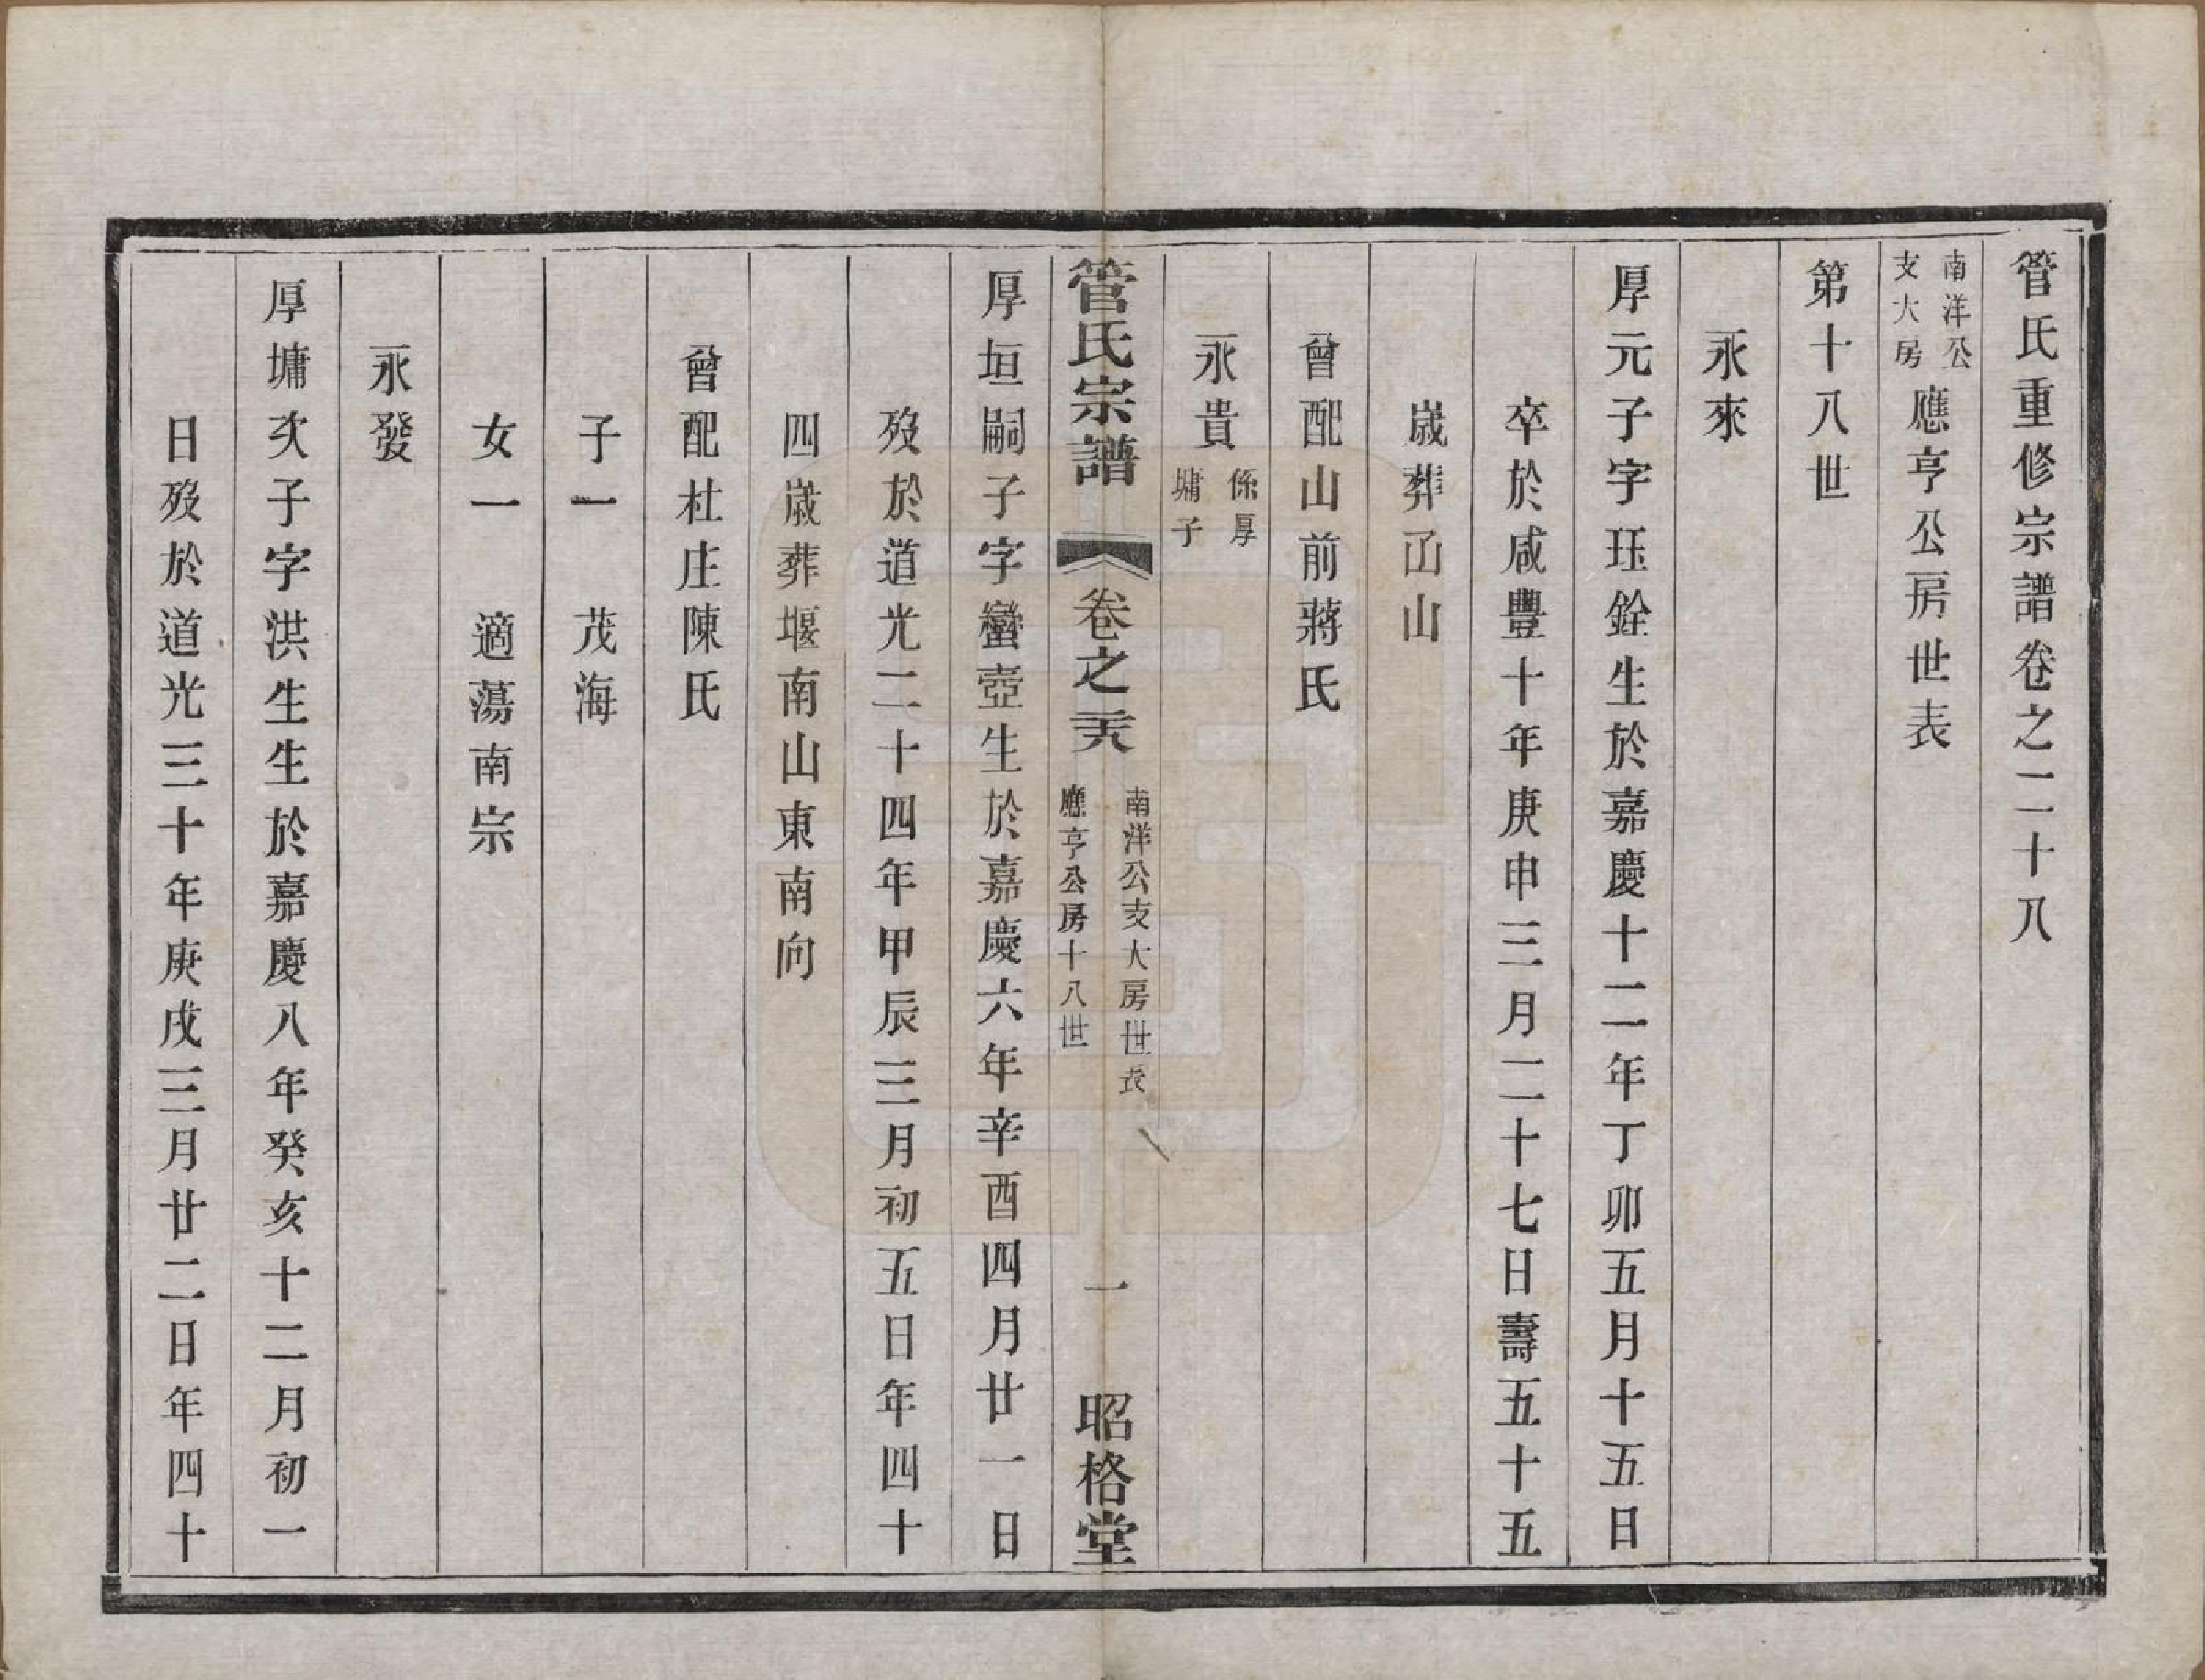 管氏重修宗譜卷之二十八
南洋公支大房應亨公房世表
第十八世
永來
厚元子字珏銓生於嘉慶十二年丁卯五月十五日
卒於咸豐十年庚申三月二十七日壽五十五
歲葬凾山
曾配山前蔣氏
永貴係厚墉子
管氏宗譜
卷之二十八
南洋公支大房世表
應亨公房十八世
一
昭格堂
厚垣嗣子字蠻壺生於嘉慶六年辛酉四月廿一日
歿於道光二十四年甲辰三月初五日年四十
四歲葬堰南山東南向
曾配杜庄陳氏
子一　茂海
女一　適蕩南宗
永發
厚墉次子字洪生生於嘉慶八年癸亥十二月初一
日歿於道光三十年庚戌三月廿二日年四十